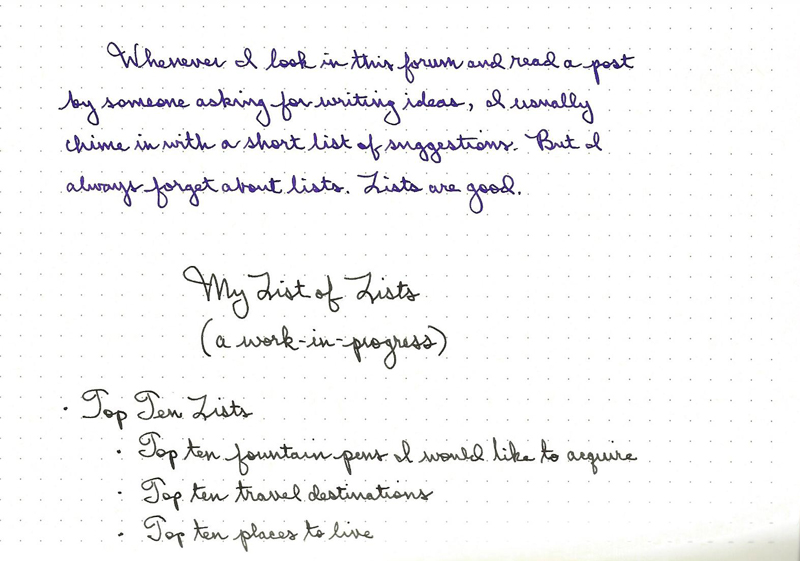 Whenever I look in this forum and read a post
by someone asking for writing ideas, I usually
chime in with a short list of suggestions. But I
always forget about lists. Lists are good.
My List of Lists
(a work-in-progress)
· Top Ten Lists
· Top ten fountain pens I would like to acquire
· Top ten travel destinations
· Top ten places to live